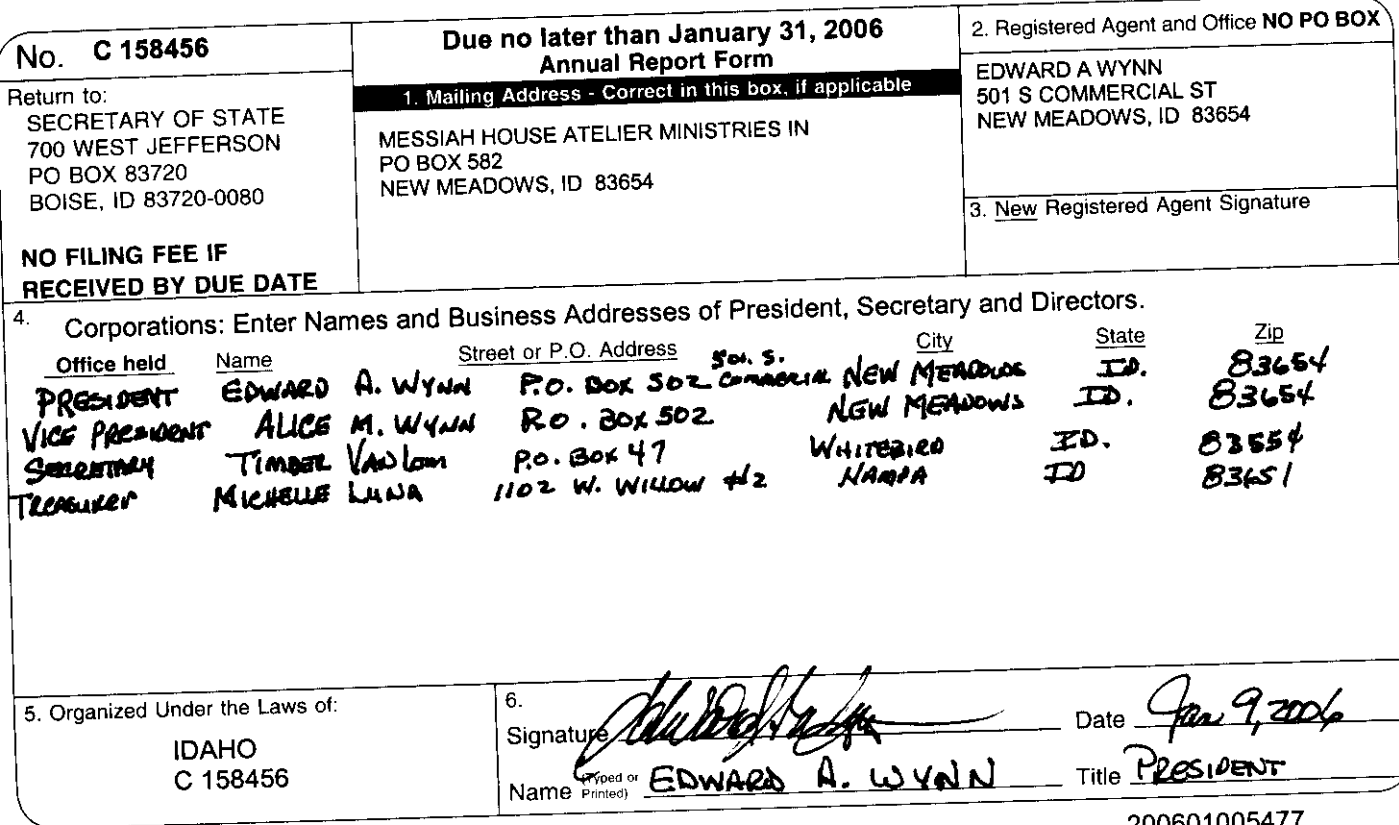 No. C 158456
Return to:
SECRETARY OF STATE
700 WEST JEFFERSON
PO BOX 83720
BOISE, ID 83720-0080
NO FILING FEE IF
RECEIVED BY DUE DATE
Due no later than January 31, 2006
Annual Report Form
1. Mailing Address - Correct in this box, if applicable
MESSIAH HOUSE ATELIER MINISTRIES IN
PO BOX 582
NEW MEADOWS, ID 83654
2. Registered Agent and Office NO PO BOX
EDWARD A WYNN
501 S COMMERCIAL ST
NEW MEADOWS, ID 83654
3. New Registered Agent Signature
4. Corporations: Enter Names and Business Addresses of President, Secretary and Directors.
Office held Name Street or P.O. Address City State Zip
PRESIDENT EDWARD A. WYNN P.O. BOX 502 501. S. COMMERCIAL NEW MEADOWS ID. 83654
VICE PRESIDENT ALICE M. WYNN P.O. BOX 502 NEW MEADOWS ID. 83654
SECRETARY TIMBER VANLOM P.O. BOX 47 WHITEBIRD ID. 83554
TREASURER MICHELLE LUNA 1102 W. WILLOW #2 NAMPA ID 83651
5. Organized Under the Laws of:
IDAHO
C 158456
6.
Signature
Date Jan 9, 2006
Name (Typed or Printed) EDWARD A. WYNN Title PRESIDENT
200601005477